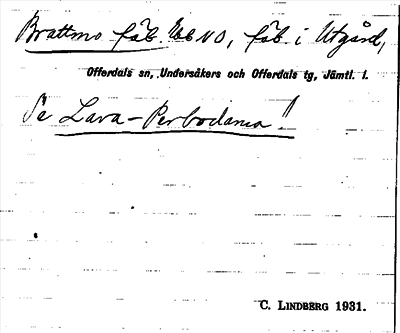 Brattmo fäb. Eb NO, fäb. i Utgård,
Offerdals sn, Undersåkers och Offerdals tg, Jämtl. l.
Se Lava-Perbodarna!
C. LINDBERG 1931.